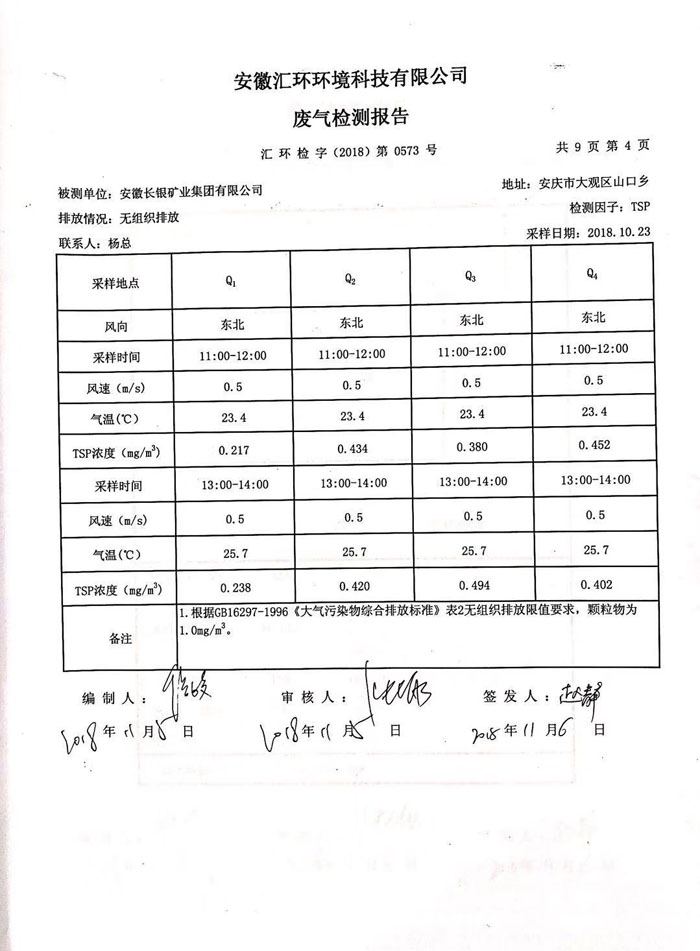 安徽汇环环境科技有限公司
废气检测报告
汇 环 检 字（2018）第 0573 号
共 9 页 第 4 页
被测单位：安徽长银矿业集团有限公司
地址：安庆市大观区山口乡
排放情况：无组织排放
检测因子：TSP
联系人：杨总
采样日期：2018.10.23
采样地点 Q₁ Q₂ Q₃ Q₄
风向 东北 东北 东北 东北
采样时间 11:00-12:00 11:00-12:00 11:00-12:00 11:00-12:00
风速（m/s) 0.5 0.5 0.5 0.5
气温(℃) 23.4 23.4 23.4 23.4
TSP浓度（mg/m³) 0.217 0.434 0.380 0.452
采样时间 13:00-14:00 13:00-14:00 13:00-14:00 13:00-14:00
风速（m/s) 0.5 0.5 0.5 0.5
气温(℃) 25.7 25.7 25.7 25.7
TSP浓度（mg/m³) 0.238 0.420 0.494 0.402
备注
1.根据GB16297-1996《大气污染物综合排放标准》表2无组织排放限值要求，颗粒物为
1.0mg/m³。
编 制 人： 审 核 人： 签 发 人：赵静
2018 年 11 月 5 日 2018 年 11 月 5 日 2018 年 11 月 6 日